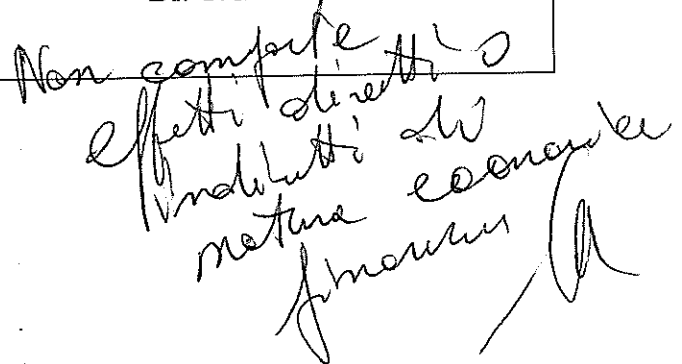 Non comporta
effetti diretti o
indiretti di
natura economica
finanziaria